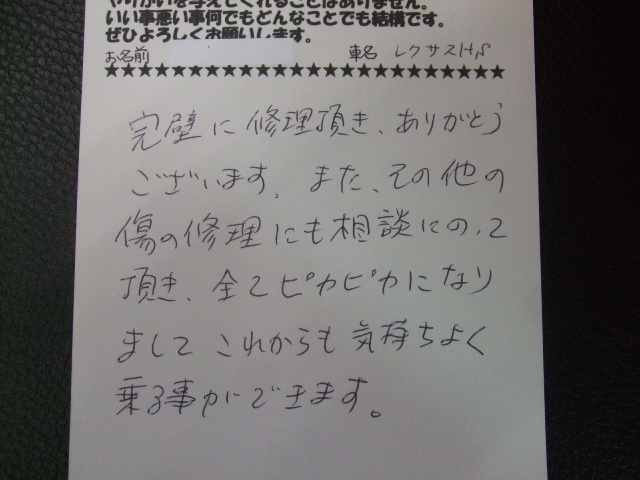 やりがいを与えてくれることはありません。
いい事悪い事何でもどんなことでも結構です。
ぜひよろしくお願いします。
お名前 車名 レクサスHS
★★★★★★★★★★★★★★★★★★★★★★★★★★★★★
完璧に修理頂き、ありがとう
ございます。また、その他の
傷の修理にも相談にのって
頂き、全てピカピカになり
まして これからも気持ちよく
乗る事ができます。